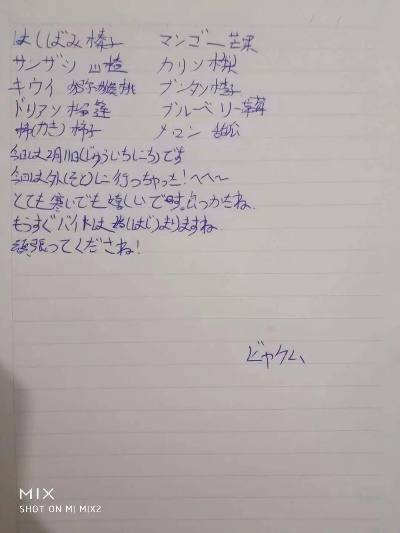 はしばみ 榛子 マンゴー 芒果
サンザシ 山楂 カリン 榠樝
キウイ 猕猴桃 ブンタン 柚子
ドリアン 榴莲 ブルーベリー 蓝莓
柿(かき) 柿子 メロン 甜瓜
今日は2月11日(じゅういちにち)です
今日は外(そと)に行っちゃった!へへ〜
とても寒いでも嬉しいです。よっかたね
もうすぐバイトは始(はじ)まりますね
頑張ってくださね!
ビャクム
MIX
SHOT ON MI MIX2